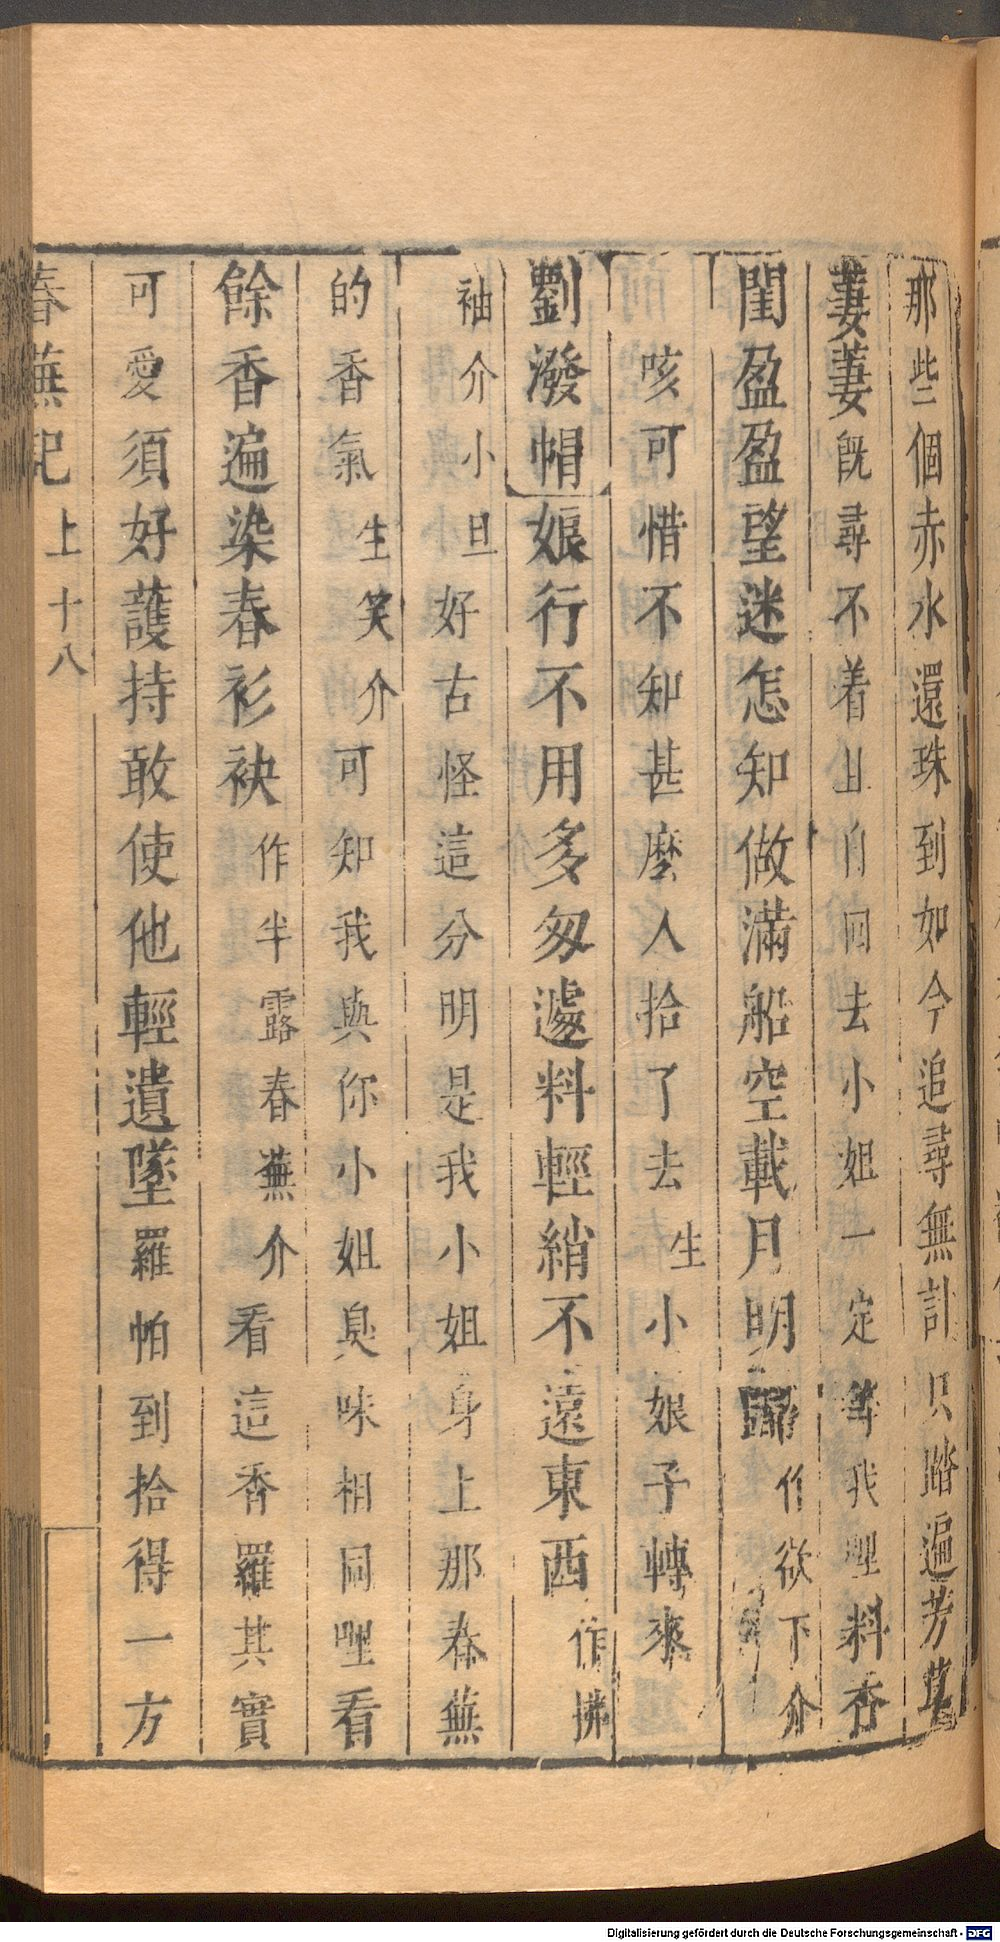 那些個赤水還珠到如今追尋無計只踏遍芳草
萋萋旣尋不着且自回去小姐一定等我哩料杏
閨盈盈望迷怎知做滿船空載月明歸作欲下介
咳可惜不知甚麽人拾了去生小娘子轉來
劉潑帽娘行不用多匆遽料輕綃不遠東西作拂
袖介小旦好古怪這分明是我小姐身上那春蕪
的香氣生笑介可知我與你小姐臭味相同哩看
餘香遍染春衫袂作半露春蕪介看這香羅其實
可愛須好護持敢使他輕遺墜羅帕到拾得一方
春蕪記 上 十八
Digitalisierung gefördert durch die Deutsche Forschungsgemeinschaft - DFG